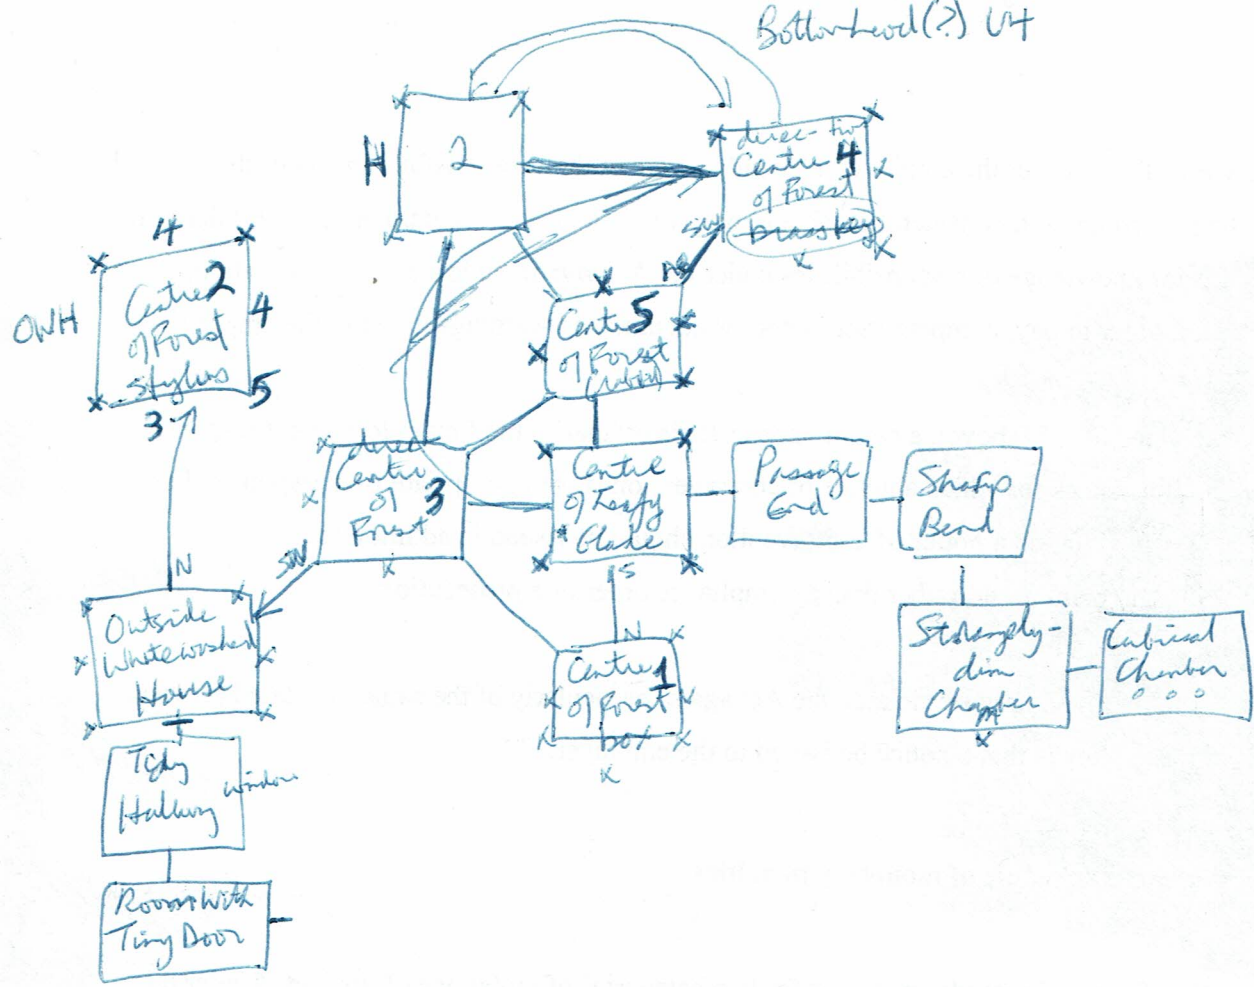 UH
H
2
direc-tion
Centre 4
of Forest
brass key
SW
NE
4
OWH
Centre 2
of Forest
stylus
4
5
3
Centre 5
of Forest
direc
Centre
of 3
Forest
Centre
of Leafy
Glade
Passage
End
Sharp
Bend
SW
N
S
N
Outside
Whitewashed
House
Centre 1
of Forest
box
dim
Cubical
Chamber
Tidy
Hallway
window
Room With
Tiny Door